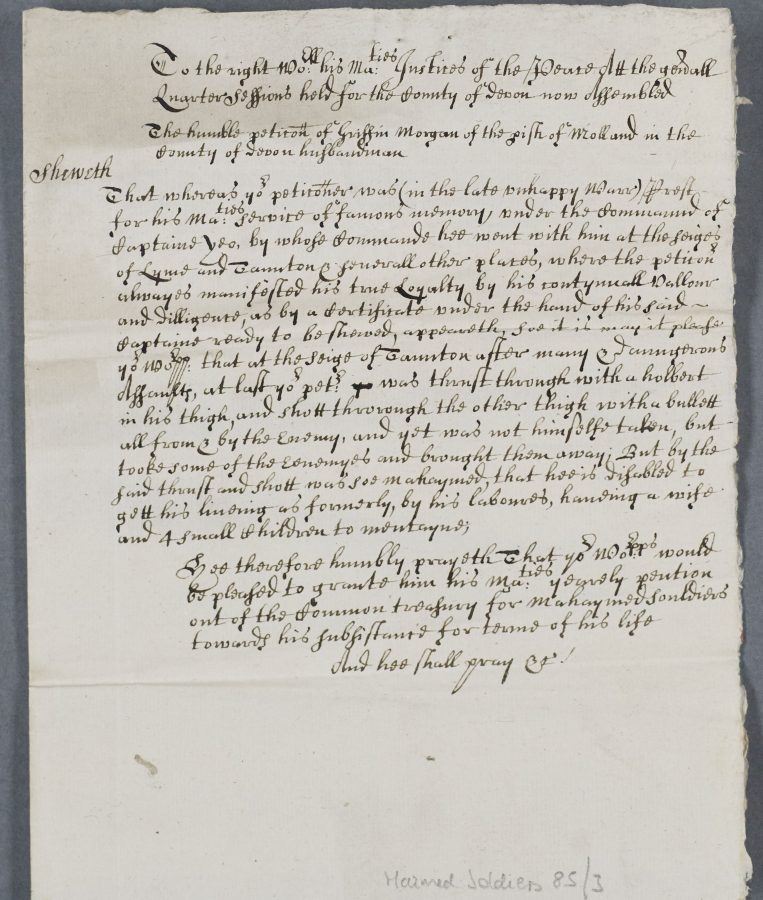 To the right Wo:ll his Ma:ties Justices of the Peace Att the genall
Quarter Sessions held for the County of Devon now Assembled
The humble peticon of Griffin Morgan of the pish of Molland in the
County of Devon husbandman
Sheweth
That whereas yor peticoner was (in the late unhappy Warr) Prest
for his Ma:ties service of famous memory under the Command of
Captaine Yeo, by whose Commande hee went with him at the seiges
of Lyme and Taunton & severall other places, where the peticonr
alwayes manifested his true Loyalty by his contynuall Vallour
and dilligence, as by a Certificate under the hand of his said
Captaine ready to be shewed, appeareth, soe it is may it please
yor Wopps: that at the seige of Taunton after many & Daungerous
Assaults, at last yor petr: was thrust through with a holbert
in his thigh, and shott thorough the other thigh with a bullett
all from & by the Enemy, and yet was not himselfe taken, but
tooke some of the Enemyes and brought them away; But by the
said thrust and shott was soe mahaymed, that hee is disabled to
gett his liveing as formerly, by his laboures, haveing a wife
and 4 small Children to mentayne;
Hee therefore humbly prayeth That yor Wo:pps would
be pleased to grante him his Ma:ties yearely pention
out of the Common treasury for Mahaymed souldiers
towards his subsistance for terme of his life
And hee shall pray &c!
Maimed Soldiers 85/3